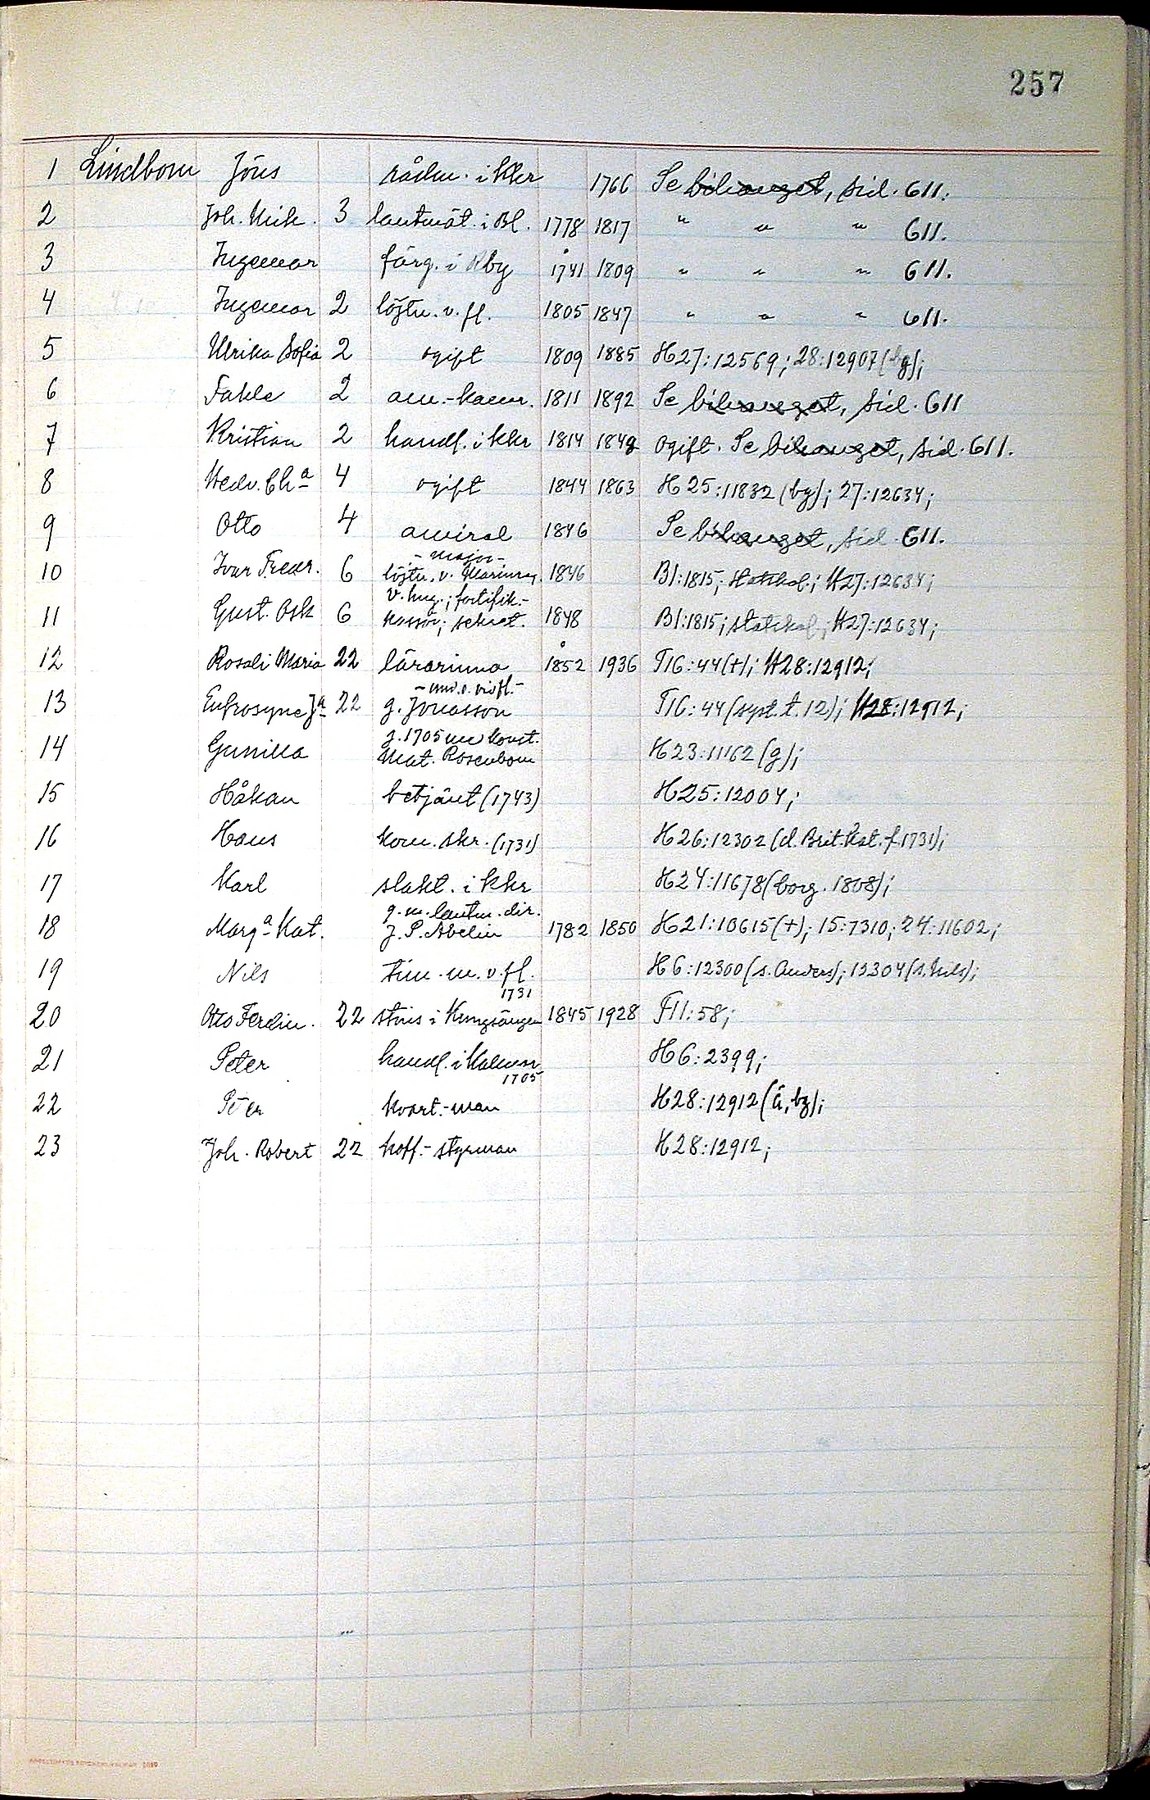 257
1 Lindbom Jöns rådm. i Kkr 1766 Se bihanget, sid. 611.
2 Joh. Mik. 3 lantmät. i Bl. 1778 1817 " " " 611.
3 Ingemar färg. i Rby 1741 1809 " " " 611.
4 Ingemar 2 löjtn. v. fl. 1805 1847 " " " 611.
5 Ulrika Sofia 2 ogift 1809 1885 H27:12569; 28:12907 (bg);
6 Fable 2 am.-kamr. 1811 1892 Se bihanget, sid. 611
7 Kristian 2 handl. i Kkr 1814 1849 ogift. Se bihanget, sid. 611.
8 Hedv. Cha 4 ogift 1844 1863 H25:11832 (bg); 27:12634;
9 Otto 4 amiral 1846 Se bihanget, sid. 611.
- major -
10 Ivar Fredr. 6 löjtn. v. Marinreg. 1846 Bl:1815; Statskal.; H27:12634;
v. hug.; fortifik.-
11 Gust. Osk 6 kassör; sekret. 1848 Bl:1815; statskal; H27:12634;
12 Rosali Maria 22 lärarinna 1852 1936 F16:44 (+); H28:12912;
- und. o. vid fl. -
13 Eufrosyne Ja 22 g. Jonasson F16:44 (syst. t. 12); H28:12912;
g. 1705 m konst.
14 Gunilla Mat. Rosenbom H23:11162 (g);
15 Håkan betjänt (1743) H25:12004;
16 Hans kom. skr. (1731) H26:12302 (d. Brit. Kat. f. 1731);
17 Karl slakt. i Kkr H24:11678 (borg. 1808);
g. m. lantm. dir.
18 Marga Kat. J. P. Abelin 1782 1850 H21:10615 (+); 15:7310; 24:11602;
19 Nils tim. m. v. fl. H6:12300 (s. Anders); 12304 (s. Nils);
1731
20 Otto Ferdin. 22 stins i Kungsängen 1845 1928 F11:58;
21 Peter handl. i Kalmar H6:2399;
1705
22 Peter kvart.-man H28:12912 (ä, bg);
23 Joh. Robert 22 koff.-styrman H28:12912;